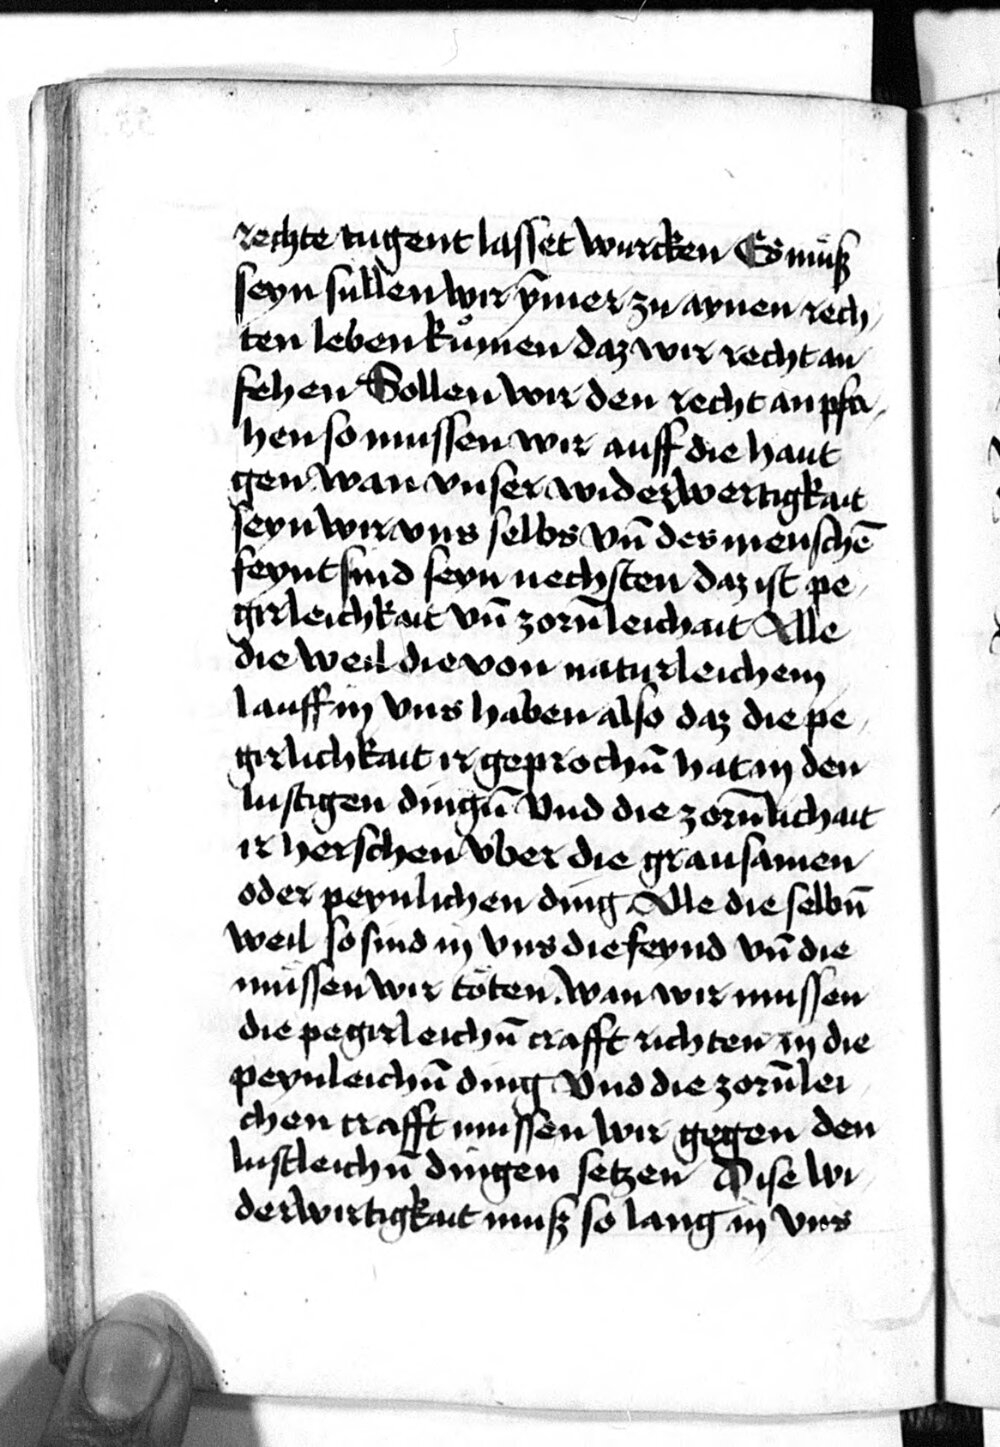 rechte tugent lasset wurcken Es muͤsz
seyn sullen wir ӯmer zu aynen rech
ten leben kuͦmen daz wir recht an
fehen Sollen wir den recht an pfa
hen so mussen wir auff die haut
gen wan vnser widerwertigkait
seyn wir vns selbs vn̄ des menschē
feynt sind seyn nechsten daz ist pe
girleichkait vn̄ zorn̄leichait Alle
die weil die von naturleichem
lauff in vns haben also daz die pe
girlichkait ir geprochn̄ hat in den
lustigen dingn̄ vnd die zorn̄lichait
ir herschen vber die grausamen
oder peynlichen ding Alle die selbn̄
weil so sind in vns die feynd vn̄ die
muͤssen wir toͤten. wan wir mussen
die pegirleichn̄ crafft richten in die
peynleichn̄ ding Vnd die zorn̄lei
chen crafft mussen wir gegen den
lustleichn̄ dingen setzen Dise wi
derwirtigkait musz so lang in vns